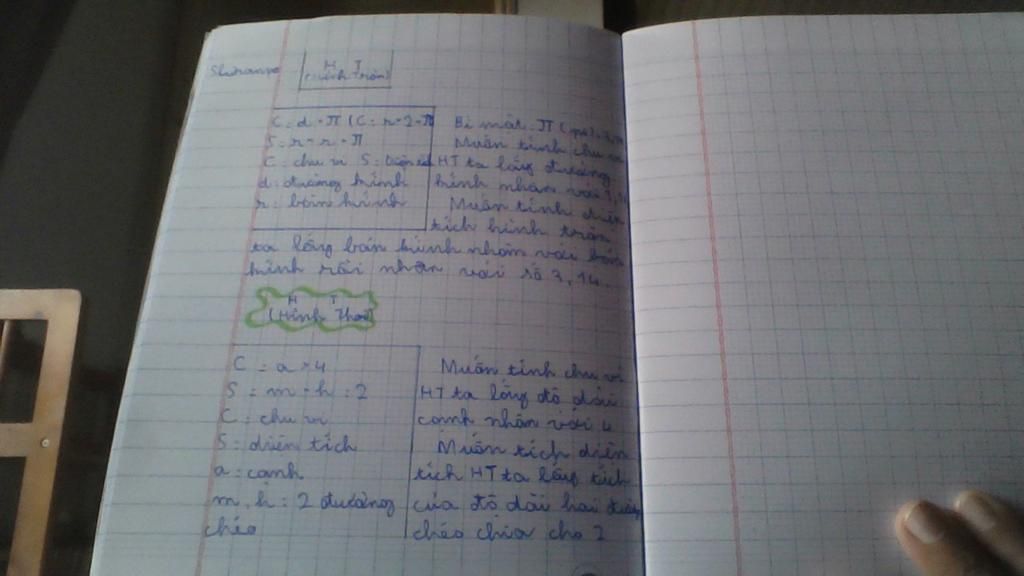 H T
(Hình tròn)
C = d × π (C = r × 2 × π
S = r × r × π
C: chu vi S: Diện tích
d: đường kính
r: bán kính
Bí mật: π (pi)
Muốn tính chu vi
HT ta lấy đường
kính nhân với 3,14
Muốn tính diện
tích hình tròn
ta lấy bán kính nhân với bán
kính rồi nhân với số 3,14.
H T
(Hình Thoi)
C = a × 4
S = m × h : 2
C: chu vi
S: diện tích
a: cạnh
m, h: 2 đường
chéo
Muốn tính chu vi
HT ta lấy độ dài
cạnh nhân với 4
Muốn tích diện
tích HT ta lấy tích
của độ dài hai đường
chéo chia cho 2